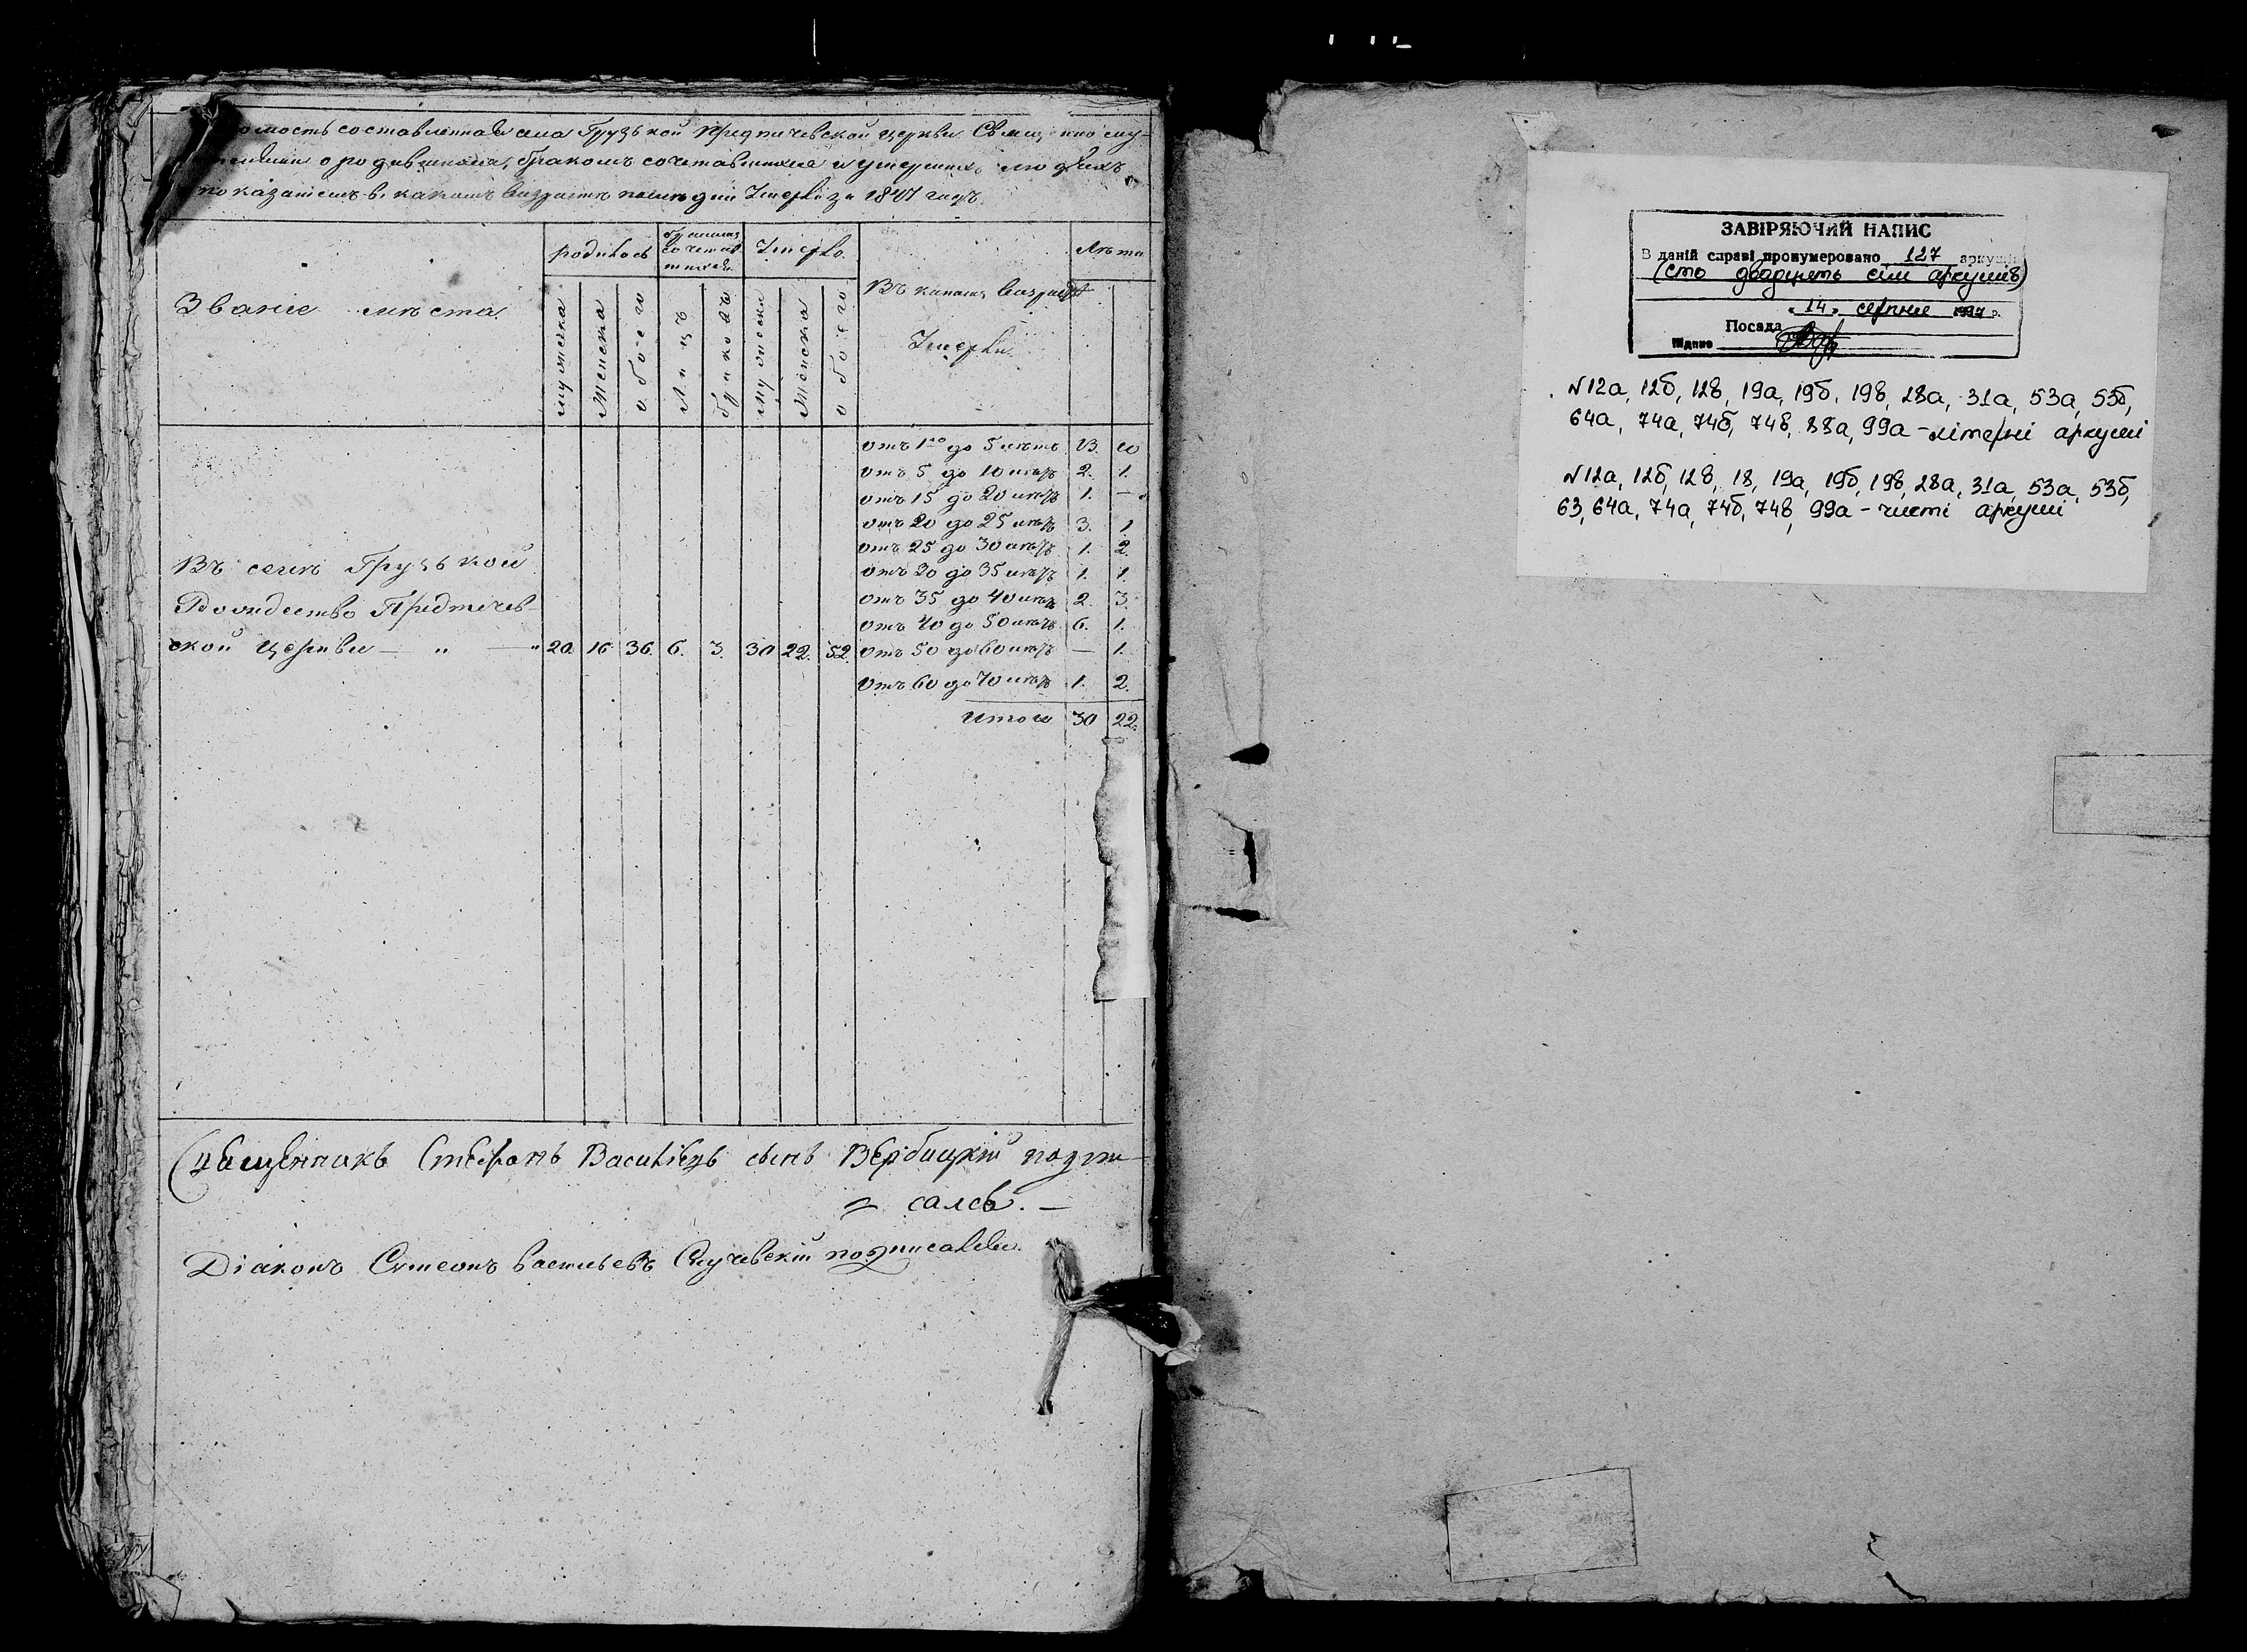 омость составленная села Грузькой Предтичевской церкви Священно слу-
о родившихся, браком сочетавшихся и умерших людехъ
показаніемъ в, какомъ возрастѣ кто Умерли за 1841 годъ.
Званіе мѣста.
родилось
бракомъ сочетавшихся
Умерло.
Въ какомъ возрастѣ
Умерли.
Лѣта
мужеска
Женска
обоего
Лицъ
браковъ
Мужеска
Женска
обоего
отъ 1го до 5 лѣтъ 13. 10
отъ 5 до 10 лѣтъ 2. 1.
отъ 15 до 20 лѣтъ 1. —
отъ 20 до 25 лѣтъ 3. 1
отъ 25 до 30 лѣтъ 1. 2.
отъ 30 до 35 лѣтъ 1. 1.
отъ 35 до 40 лѣтъ 2. 3.
отъ 40 до 50 лѣтъ 6. 1.
Въ селѣ Грузькой
Рождество Предтечев-
ской церкви — " — " 20. 16 36. 6. 3. 30 22. 52. отъ 50 до 60 лѣтъ — 1.
отъ 60 до 70 лѣтъ 1. 2.
Итого 30 22.
Священникъ Стефанъ Василіевъ сынъ Вербицкій подпи-
= салсь. —
Діаконъ Симеонъ Васильевъ Случевскій подписалсь.
ЗАВІРЯЮЧИЙ НАПИС
В даній справі пронумеровано 127 аркушів
(сто двадцять сім аркушів)
« 14 » серпня 1997 р.
Посада
Підпис
№12а, 12б, 12в, 19а, 19б, 19в, 28а, 31а, 53а, 53б,
64а, 74а, 74б, 74в, 88а, 99а – літерні аркуші
№12а, 12б, 12в, 18, 19а, 19б, 19в, 28а, 31а, 53а, 53б,
63, 64а, 74а, 74б, 74в, 99а – чисті аркуші